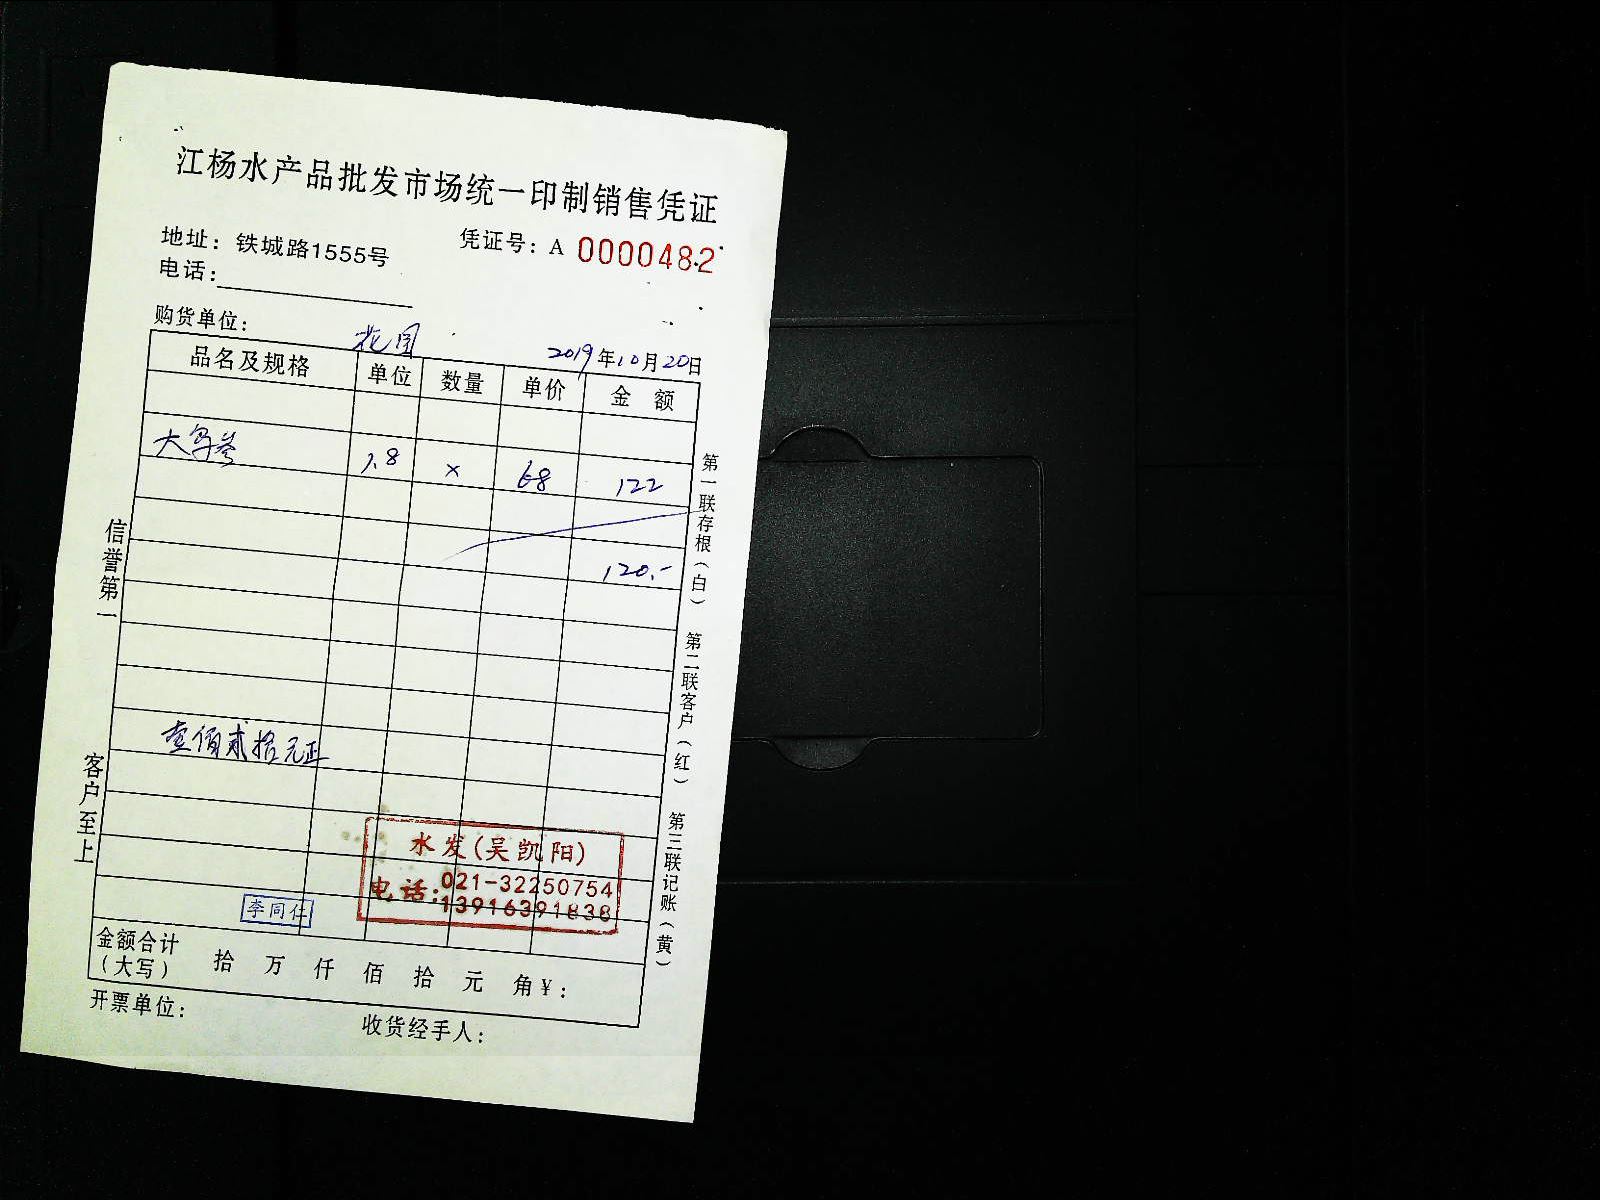 江杨水产品批发市场统一印制销售凭证
地址：铁城路1555号
凭证号：A 0000482
电话：
购货单位：花园
2019年10月20日
品名及规格 单位 数量 单价 金额
大乌参 1.8 x 68 122
120.-
壹佰贰拾元正
水发(吴凯阳)
电话：021-32250754
13916391838
李同仁
金额合计（大写） 拾 万 仟 佰 拾 元 角￥：
开票单位：
收货经手人：
信誉第一
客户至上
第一联存根（白） 第二联客户（红） 第三联记账（黄）